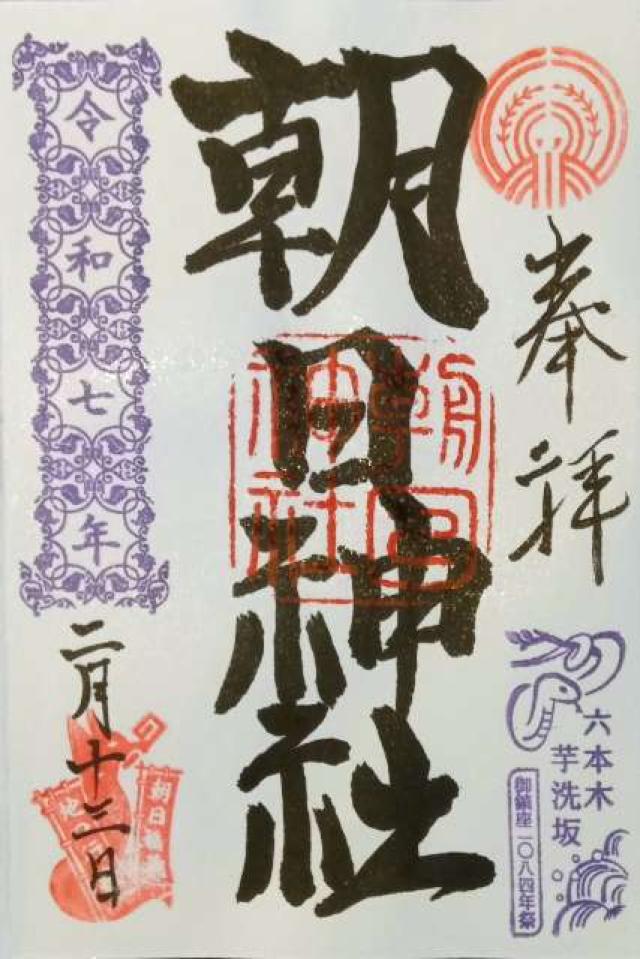 奉拝
朝日神社
朝日神社
令和七年
二月十三日
六本木
芋洗坂
御鎮座一〇八四年祭